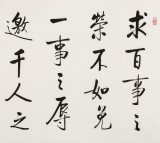 求百事之
榮不如免
一事之辱
邀千人之